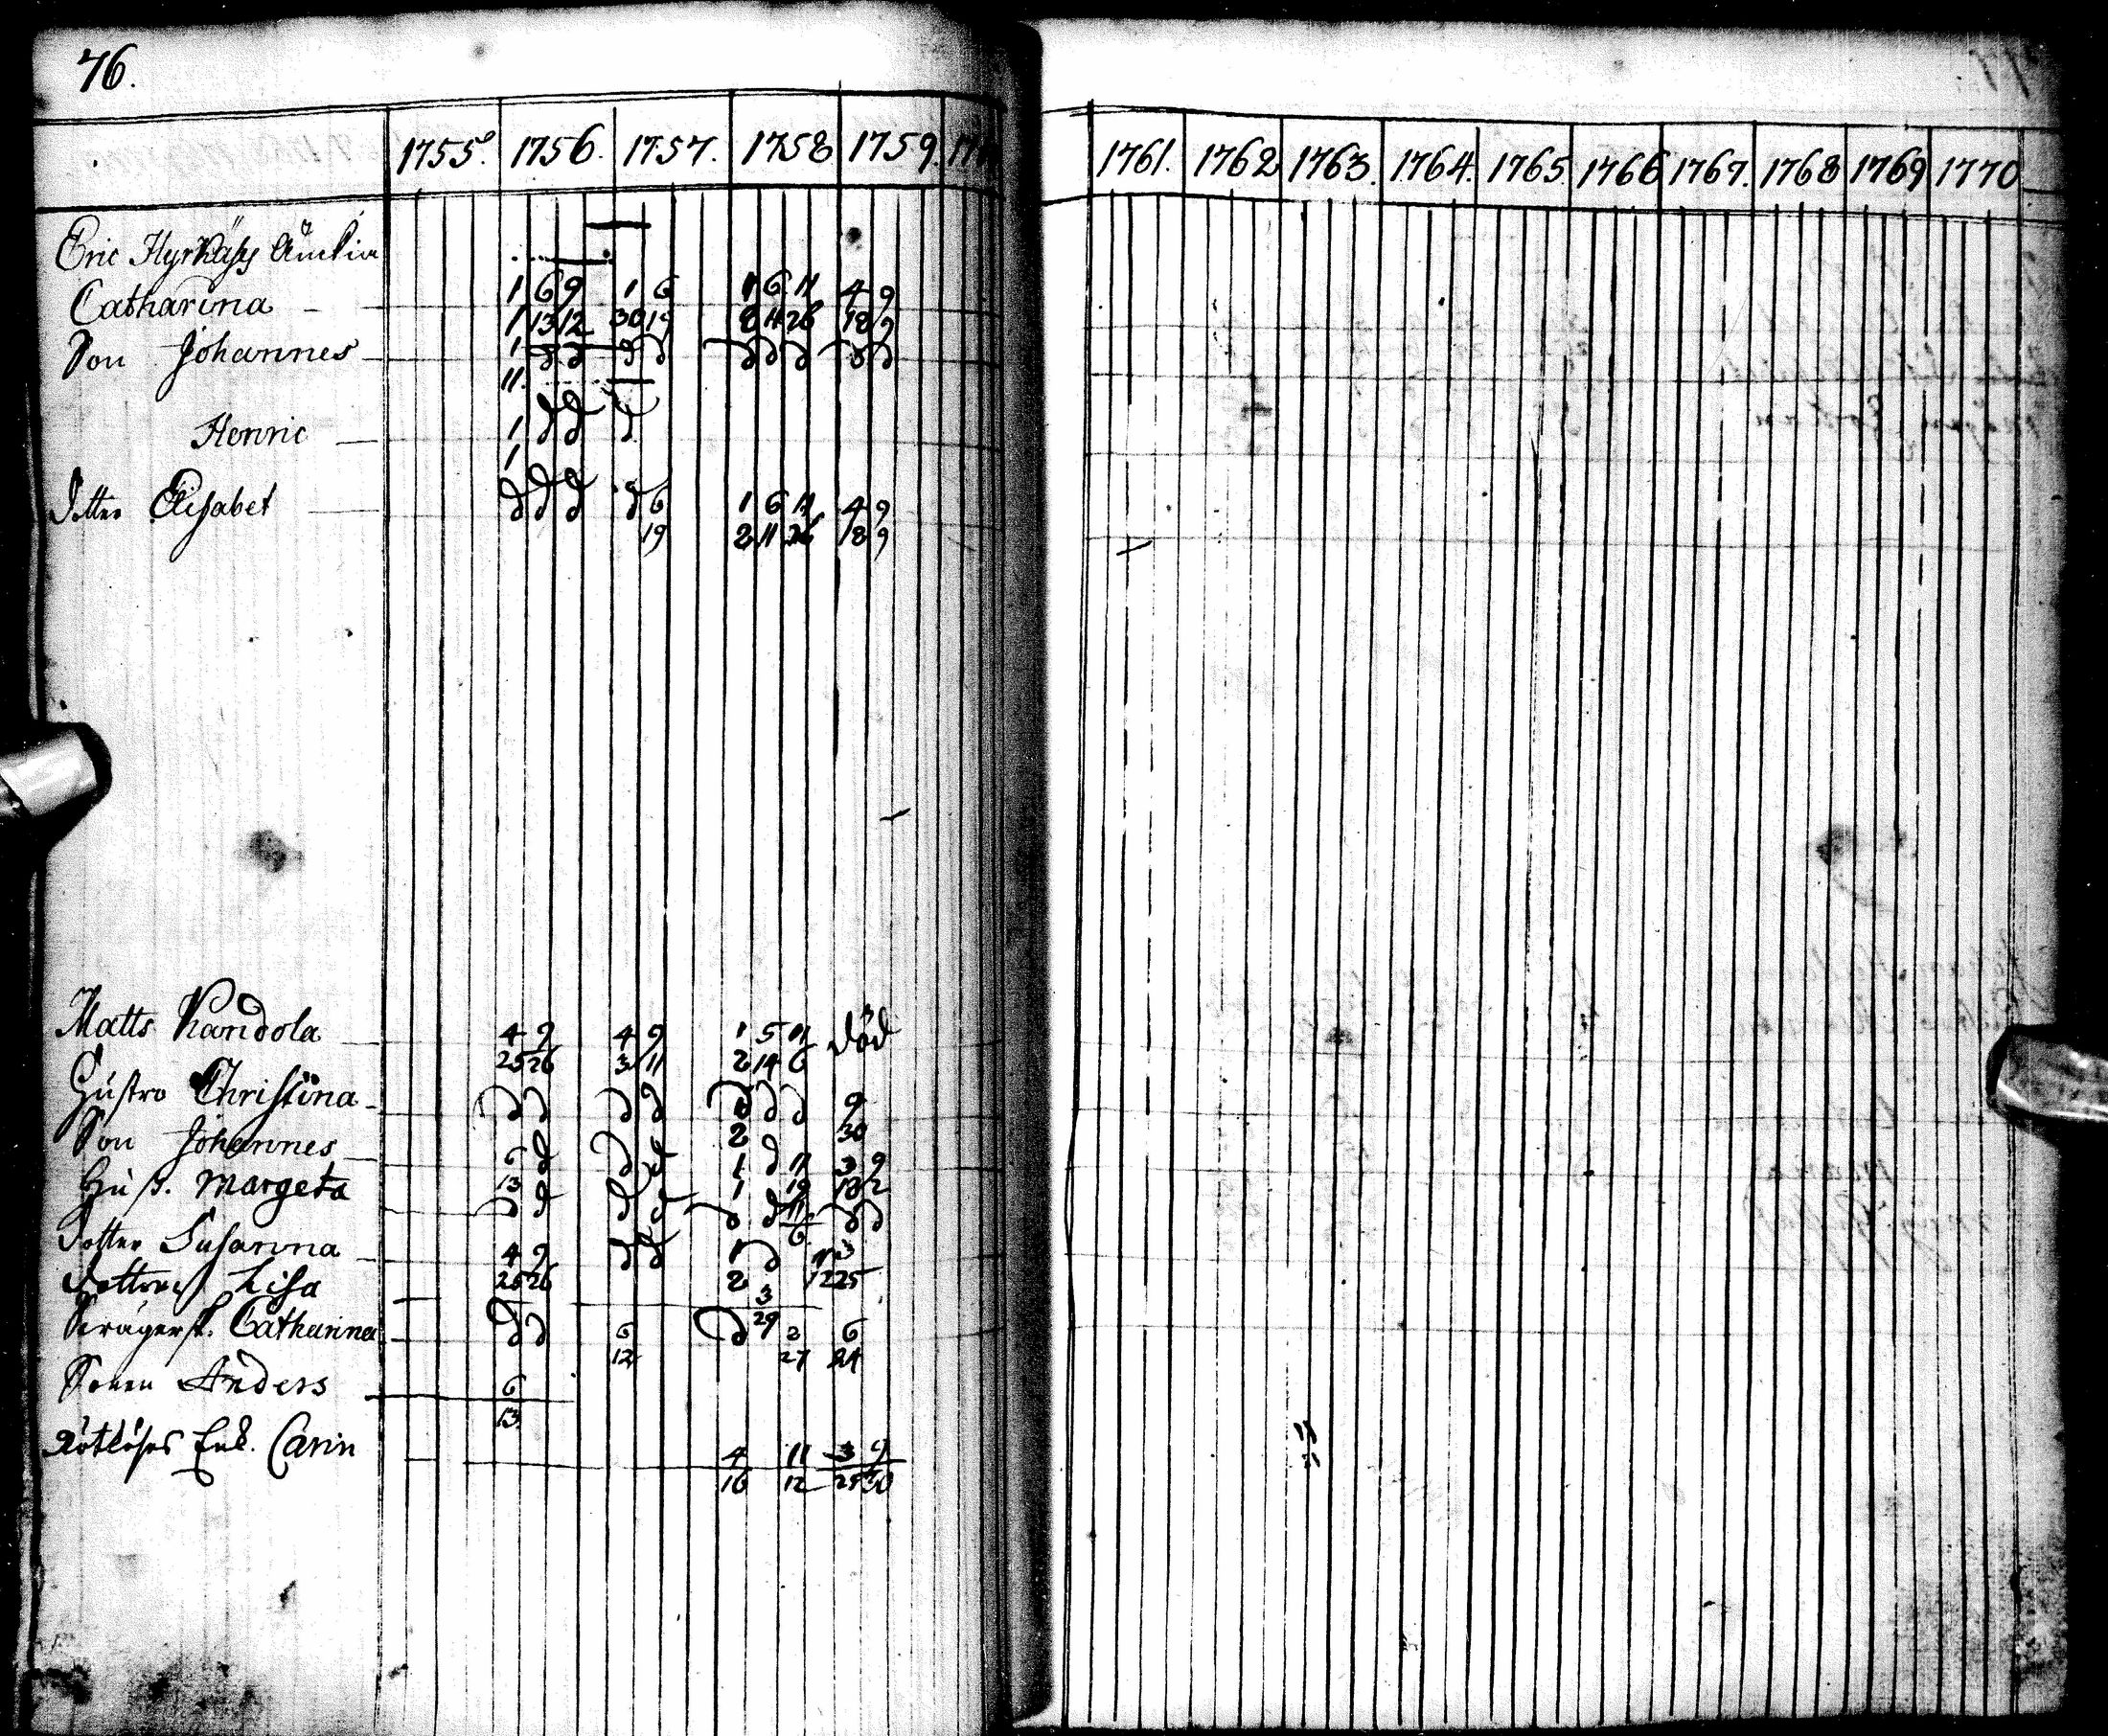 76.
1755. 1756. 1757. 1758 1759. 1761. 1762 1763. 1764. 1765. 1766 1767. 1768 1769 1770
Eric Hyrkäs
1 6 9 1 6 1 6 11 4 9
Catharina
1 13 12 30 19 2 11 26 18 9
Son Johannes
11.
Henric
1
1
Dotter Elisabet
6 1 6 11 4 9
19 2 11 26 18 9
Matts Kandola
4 9 4 9 1 5 11 död
25 26 3 11 2 14 6
Hustro Christina
9
Son Johannes
2 30
6 1 11 3 9
Hust. Margeta
13 1 19 18 2
11
6
Dotter Susanna
4 9 1 11 3
Lisa
25 26 2 12 25
3
29
Catharina
6 2 6
12 27 24
Sonen Anders
6
13
Rotlöses Enk. Carin
4 11 3 9
16 12 25 30